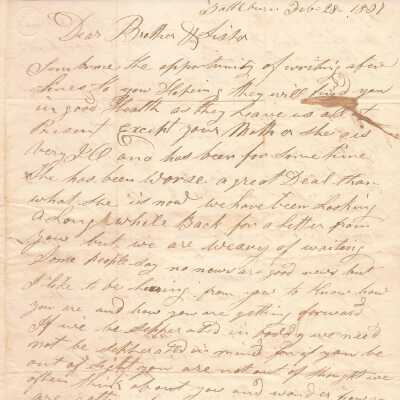 Feb 28 18
Dear Brother & Sister
I embrace the opportunity of writing a few
lines to you Hoping they will find you
in good Health as they leave us all at
Present Except your Mother She is
very Ill and has been for Some time
She has been Worse a great Deal than
what She is now we have been Looking
a Long while Back for a Letter from
you but we are weary of writing
Some People say no news are good news but
I like to be hearing from you to know how
you are and how you are getting forward
If we be Sepperated in boddy we need
not be Sepperated in mind for if you be
out of Sight you are not out of thought we
often think about you and wonder how
are